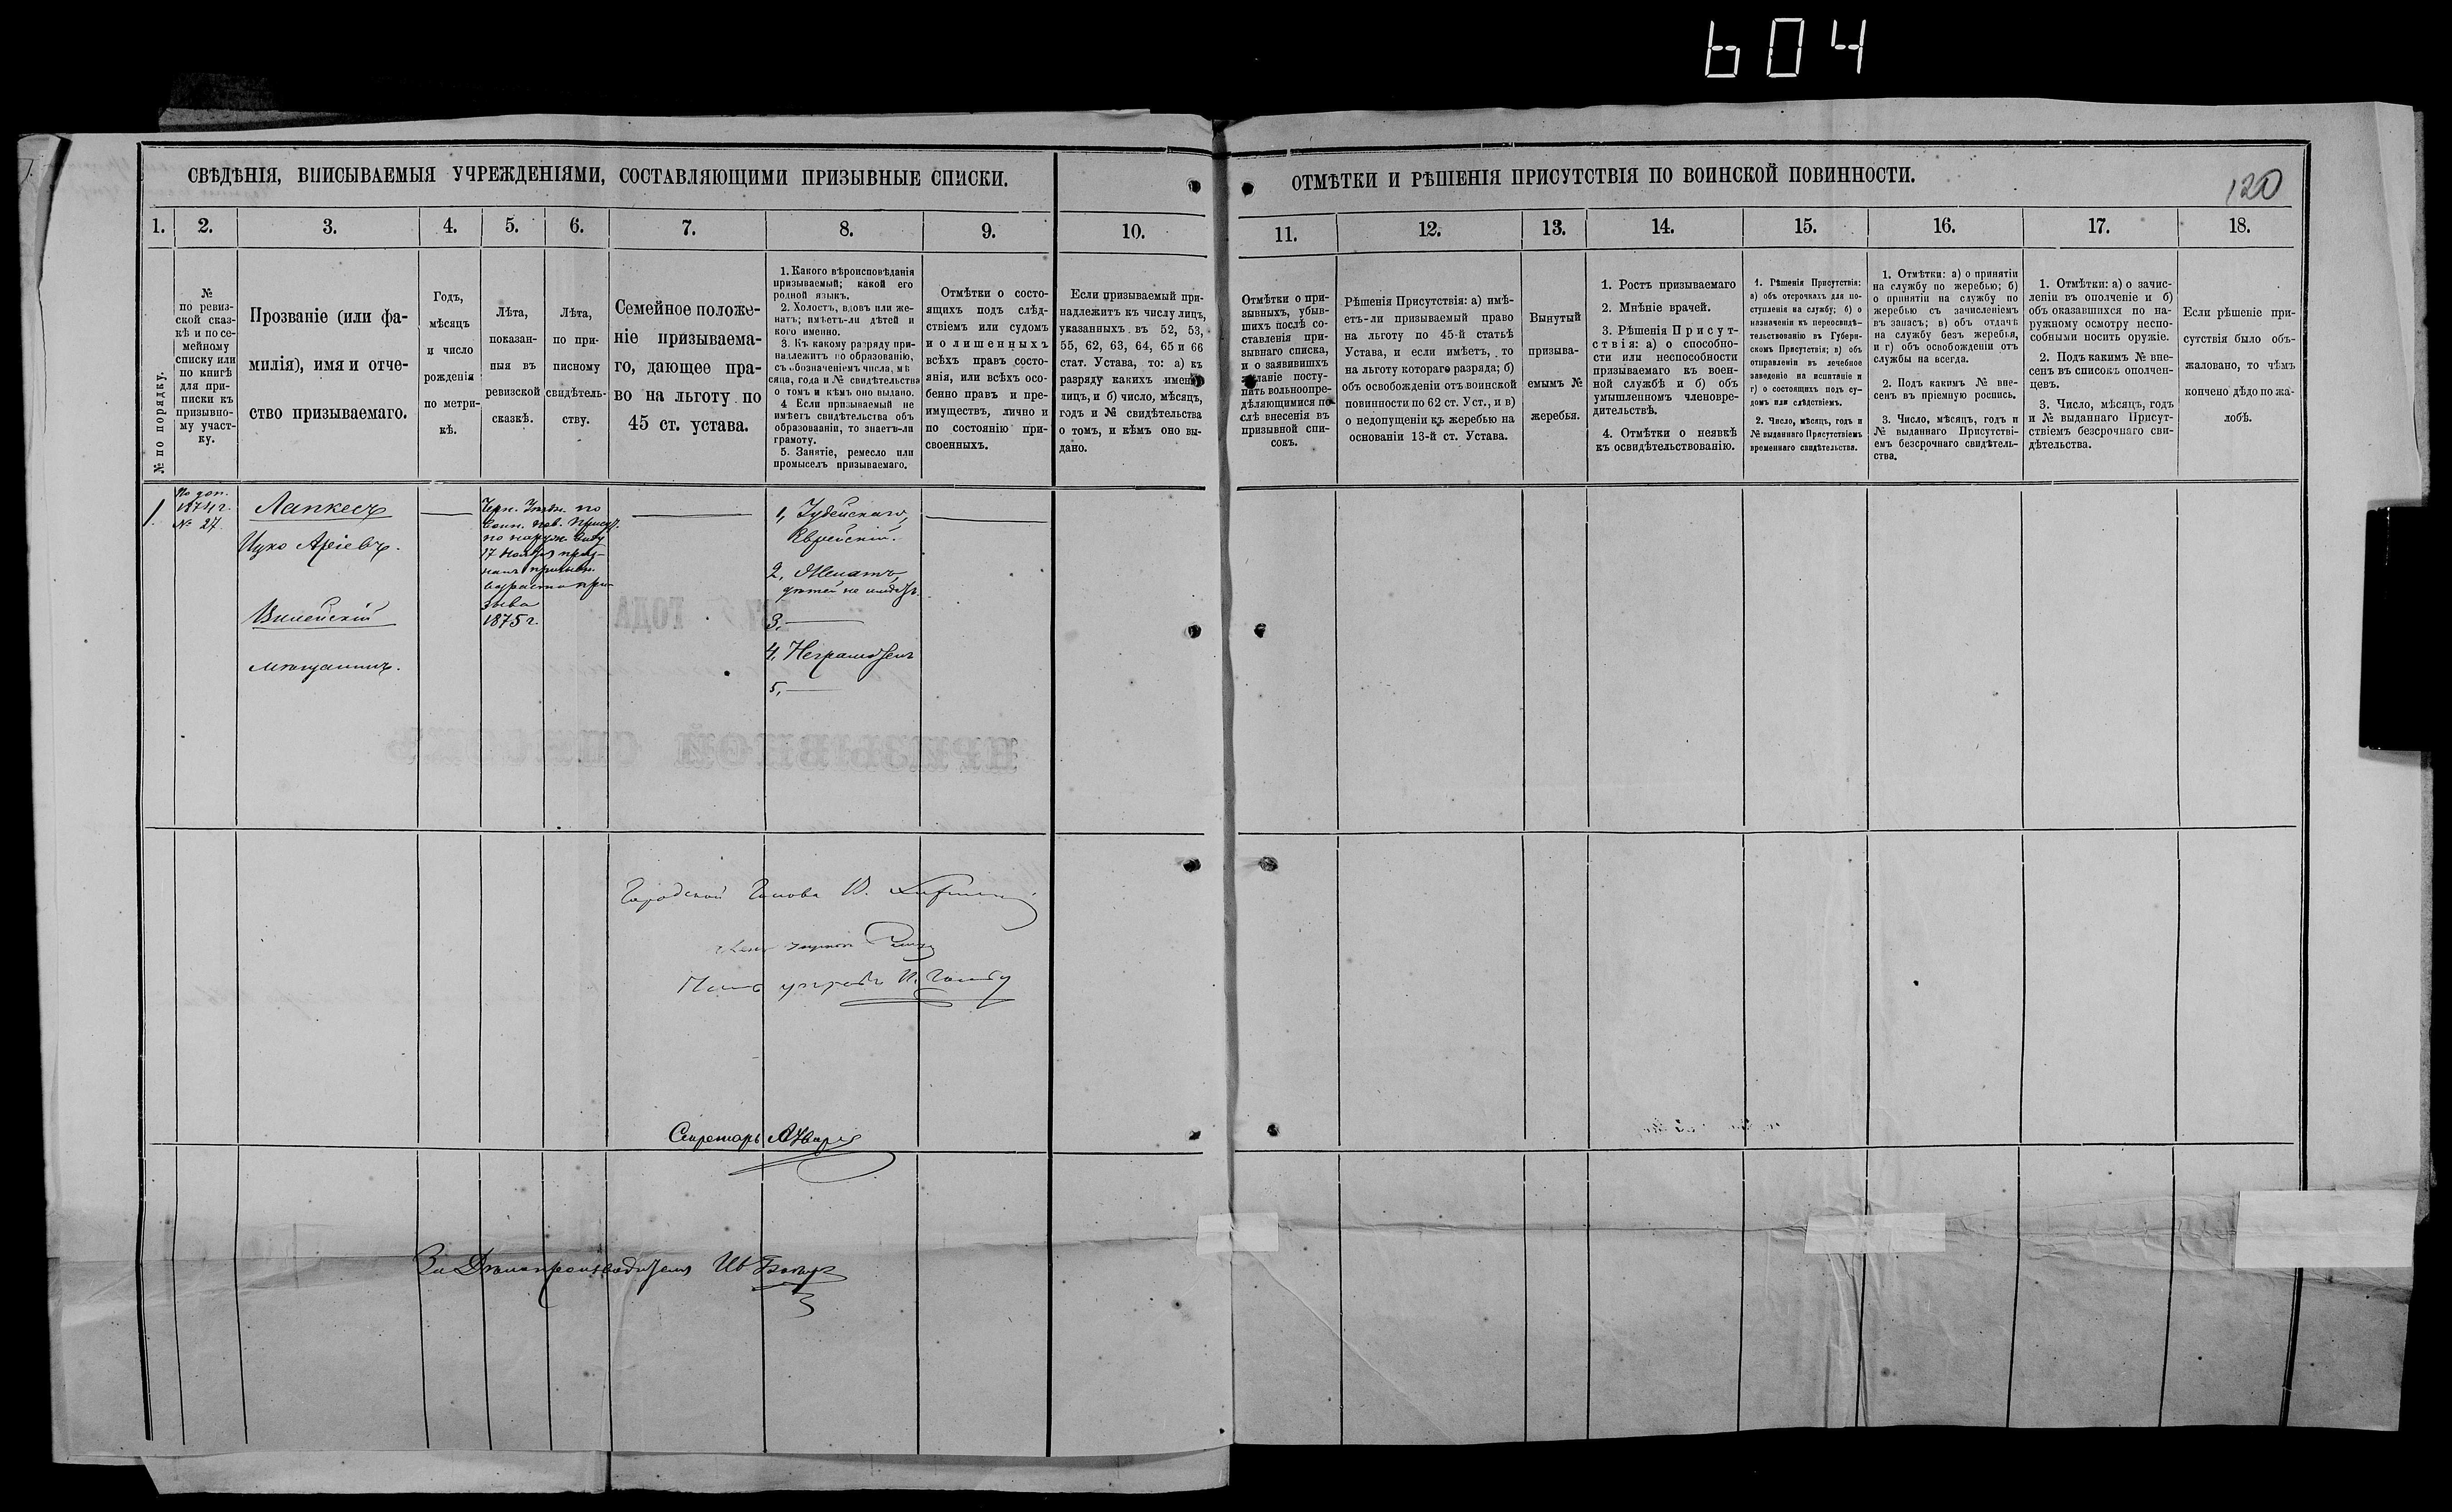 604
120
СВѢДѢНІЯ, ВПИСЫВАЕМЫЯ УЧРЕЖДЕНІЯМИ, СОСТАВЛЯЮЩИМИ ПРИЗЫВНЫЕ СПИСКИ.
ОТМѢТКИ И РѢШЕНІЯ ПРИСУТСТВІЯ ПО ВОИНСКОЙ ПОВИННОСТИ.
1. 2. 3. 4. 5. 6. 7. 8. 9. 10. 11. 12. 13. 14. 15. 16. 17. 18.
№ по порядку.
№
по ревиз-
ской сказ-
кѣ и по се-
мейному
списку или
по книгѣ
для при-
писки къ
призывно-
му участ-
ку.
Прозваніе (или фа-
милія), имя и отче-
ство призываемаго.
Годъ,
мѣсяцъ
и число
рожденія
по метри-
кѣ.
Лѣта,
показан-
ныя въ
ревизской
сказкѣ.
Лѣта,
по при-
писному
свидѣтель-
ству.
Семейное положе-
ніе призываема-
го, дающее пра-
во на льготу по
45 ст. устава.
1. Какого вѣроисповѣданія
призываемый; какой его
родной языкъ.
2. Холостъ, вдовъ или же-
натъ; имѣетъ-ли дѣтей и
кого именно.
3. Къ какому разряду при-
надлежитъ по образованію,
съ обозначеніемъ числа, мѣ
сяца, года и № свидѣтельства
о томъ и кѣмъ оно выдано.
4 Если призываемый не
имѣетъ свидѣтельства объ
образованіи, то знаетъ-ли
грамоту.
5. Занятіе, ремесло или
промыселъ призываемаго.
Отмѣтки о состо-
ящихъ подъ слѣд-
ствіемъ или судомъ
и о лишенныхъ
всѣхъ правъ состо-
янія, или всѣхъ осо-
бенно правъ и пре-
имуществъ, лично и
по состоянію при-
своенныхъ.
Если призываемый при-
надлежитъ къ числу лицъ,
указанныхъ въ 52, 53,
55, 62, 63, 64, 65 и 66
стат. Устава, то: а) къ
разряду какихъ именно
лицъ, и б) число, мѣсяцъ,
годъ и № свидѣтельства
о томъ, и кѣмъ оно вы-
дано.
Отмѣтки о при-
зывныхъ, убыв-
шихъ послѣ со-
ставленія при-
зывнаго списка,
и о заявившихъ
желаніе посту-
пить вольноопре-
дѣляющимися по-
слѣ внесенія въ
призывной спи-
сокъ.
Рѣшенія Присутствія: а) имѣ-
етъ-ли призываемый право
на льготу по 45-й статьѣ
Устава, и если имѣетъ, то
на льготу котораго разряда; б)
объ освобожденіи отъ воинской
повинности по 62 ст. Уст., и в)
о недопущеніи къ жеребью на
основаніи 13-й ст. Устава.
Вынутый
призыва-
емымъ №
жеребья.
1. Ростъ призываемаго
2. Мнѣніе врачей.
3. Рѣшенія Присут-
ствія: а) о способно-
сти или неспособности
призываемаго къ воен-
ной службѣ и б) объ
умышленномъ членовре-
дительствѣ.
4. Отмѣтки о неявкѣ
къ освидѣтельствованію.
1. Рѣшенія Присутствія:
а) объ отсрочкахъ для по-
ступленія на службу; б) о
назначеніи къ переосвидѣ-
тельствованію въ Губерн-
скомъ Присутствіи; в) объ
отправленіи въ лечебное
заведеніе на испытаніе и
г) о состоящихъ подъ су-
домъ или слѣдствіемъ.
2. Число, мѣсяцъ, годъ и
№ выданнаго Присутствіемъ
временнаго свидѣтельства.
1. Отмѣтки: а) о принятіи
на службу по жеребью; б)
о принятіи на службу по
жеребью съ зачисленіемъ
въ запасъ; в) объ отдачѣ
на службу безъ жеребья,
и г) объ освобожденіи отъ
службы на всегда.
2. Подъ какимъ № вне-
сенъ въ пріемную роспись.
3. Число, мѣсяцъ, годъ и
№ выданнаго Присутстві-
емъ безсрочнаго свидѣтель-
ства.
1. Отмѣтки: а) о зачис-
леніи въ ополченіе и б)
объ оказавшихся по на-
ружному осмотру неспо-
собными носить оружіе.
2. Подъ какимъ № вне-
сенъ въ списокъ ополчен-
цевъ.
3. Число, мѣсяцъ, годъ
и № выданнаго Присут-
ствіемъ безсрочнаго сви-
дѣтельства.
Если рѣшеніе при-
сутствія было объ-
жаловано, то чѣмъ
кончено дѣло по жа-
лобѣ.
1.
По доп.
1874 г.
№ 27.
Лапкесъ
Ицко Аріевъ.
Вилейскій
мѣщанинъ.
по
Воин. пов. Присут.
по наруж. виду
17 Ноября приз-
нанъ
возраста при-
зыва
1875 г.
1, Іудейскаго,
Еврейскій.
2, Женатъ,
дѣтей не имѣетъ.
3,
4, Неграмотенъ
5,
Городской Голова
Секретарь
За Дѣлопроизводителя